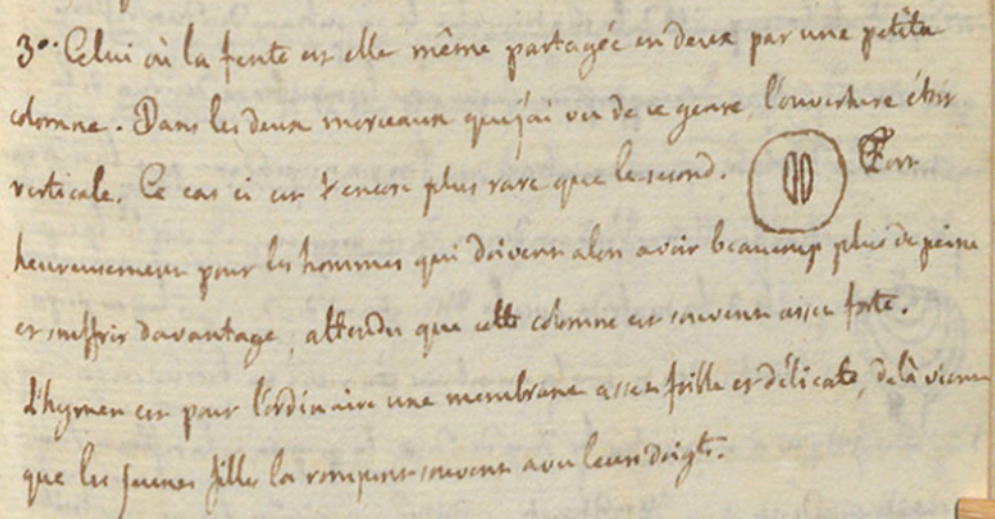 3º. Celui où la fente est elle même partagée en deux par une petite
colomne. Dans les deux morceaux que j'ai vu de ce genre, l'ouverture étoit
verticale. Ce cas ci est encore plus rare que le second. Fort
heureusement pour les hommes qui doivent alors avoir beaucoup plus de peine
et souffrir davantage, attendu que cette colomne est souvent assez forte.
L'hymen est pour l'ordinaire une membrane assez frille et délicate, delà vient
que les jeunes filles la rompent souvent avec leurs doigts.